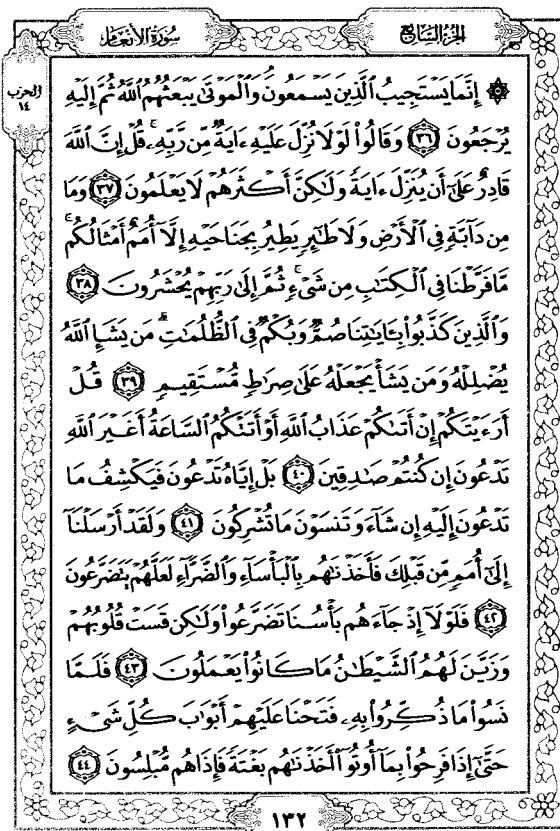 سورة الأنعام
الجزء السابع
الحزب
١٤
۞ إِنَّمَا يَسْتَجِيبُ ٱلَّذِينَ يَسْمَعُونَۘ وَٱلْمَوْتَىٰ يَبْعَثُهُمُ ٱللَّهُ ثُمَّ إِلَيْهِ
يُرْجَعُونَ ﴿٣٦﴾ وَقَالُوا۟ لَوْلَا نُزِّلَ عَلَيْهِ ءَايَةٌ مِّن رَّبِّهِۦۚ قُلْ إِنَّ ٱللَّهَ
قَادِرٌ عَلَىٰٓ أَن يُنَزِّلَ ءَايَةً وَلَٰكِنَّ أَكْثَرَهُمْ لَا يَعْلَمُونَ ﴿٣٧﴾ وَمَا
مِن دَآبَّةٍ فِى ٱلْأَرْضِ وَلَا طَٰٓئِرٍ يَطِيرُ بِجَنَاحَيْهِ إِلَّآ أُمَمٌ أَمْثَالُكُمۚ
مَّا فَرَّطْنَا فِى ٱلْكِتَٰبِ مِن شَىْءٍۚ ثُمَّ إِلَىٰ رَبِّهِمْ يُحْشَرُونَ ﴿٣٨﴾
وَٱلَّذِينَ كَذَّبُوا۟ بِـَٔايَٰتِنَا صُمٌّ وَبُكْمٌ فِى ٱلظُّلُمَٰتِۗ مَن يَشَإِ ٱللَّهُ
يُضْلِلْهُ وَمَن يَشَأْ يَجْعَلْهُ عَلَىٰ صِرَٰطٍ مُّسْتَقِيمٍ ﴿٣٩﴾ قُلْ
أَرَءَيْتَكُمْ إِنْ أَتَىٰكُمْ عَذَابُ ٱللَّهِ أَوْ أَتَتْكُمُ ٱلسَّاعَةُ أَغَيْرَ ٱللَّهِ
تَدْعُونَ إِن كُنتُمْ صَٰدِقِينَ ﴿٤٠﴾ بَلْ إِيَّاهُ تَدْعُونَ فَيَكْشِفُ مَا
تَدْعُونَ إِلَيْهِ إِن شَآءَ وَتَنسَوْنَ مَا تُشْرِكُونَ ﴿٤١﴾ وَلَقَدْ أَرْسَلْنَآ
إِلَىٰٓ أُمَمٍ مِّن قَبْلِكَ فَأَخَذْنَٰهُم بِٱلْبَأْسَآءِ وَٱلضَّرَّآءِ لَعَلَّهُمْ يَتَضَرَّعُونَ
﴿٤٢﴾ فَلَوْلَآ إِذْ جَآءَهُم بَأْسُنَا تَضَرَّعُوا۟ وَلَٰكِن قَسَتْ قُلُوبُهُمْ
وَزَيَّنَ لَهُمُ ٱلشَّيْطَٰنُ مَا كَانُوا۟ يَعْمَلُونَ ﴿٤٣﴾ فَلَمَّا
نَسُوا۟ مَا ذُكِّرُوا۟ بِهِۦ فَتَحْنَا عَلَيْهِمْ أَبْوَٰبَ كُلِّ شَىْءٍ
حَتَّىٰٓ إِذَا فَرِحُوا۟ بِمَآ أُوتُوٓا۟ أَخَذْنَٰهُم بَغْتَةً فَإِذَا هُم مُّبْلِسُونَ ﴿٤٤﴾
١٣٢